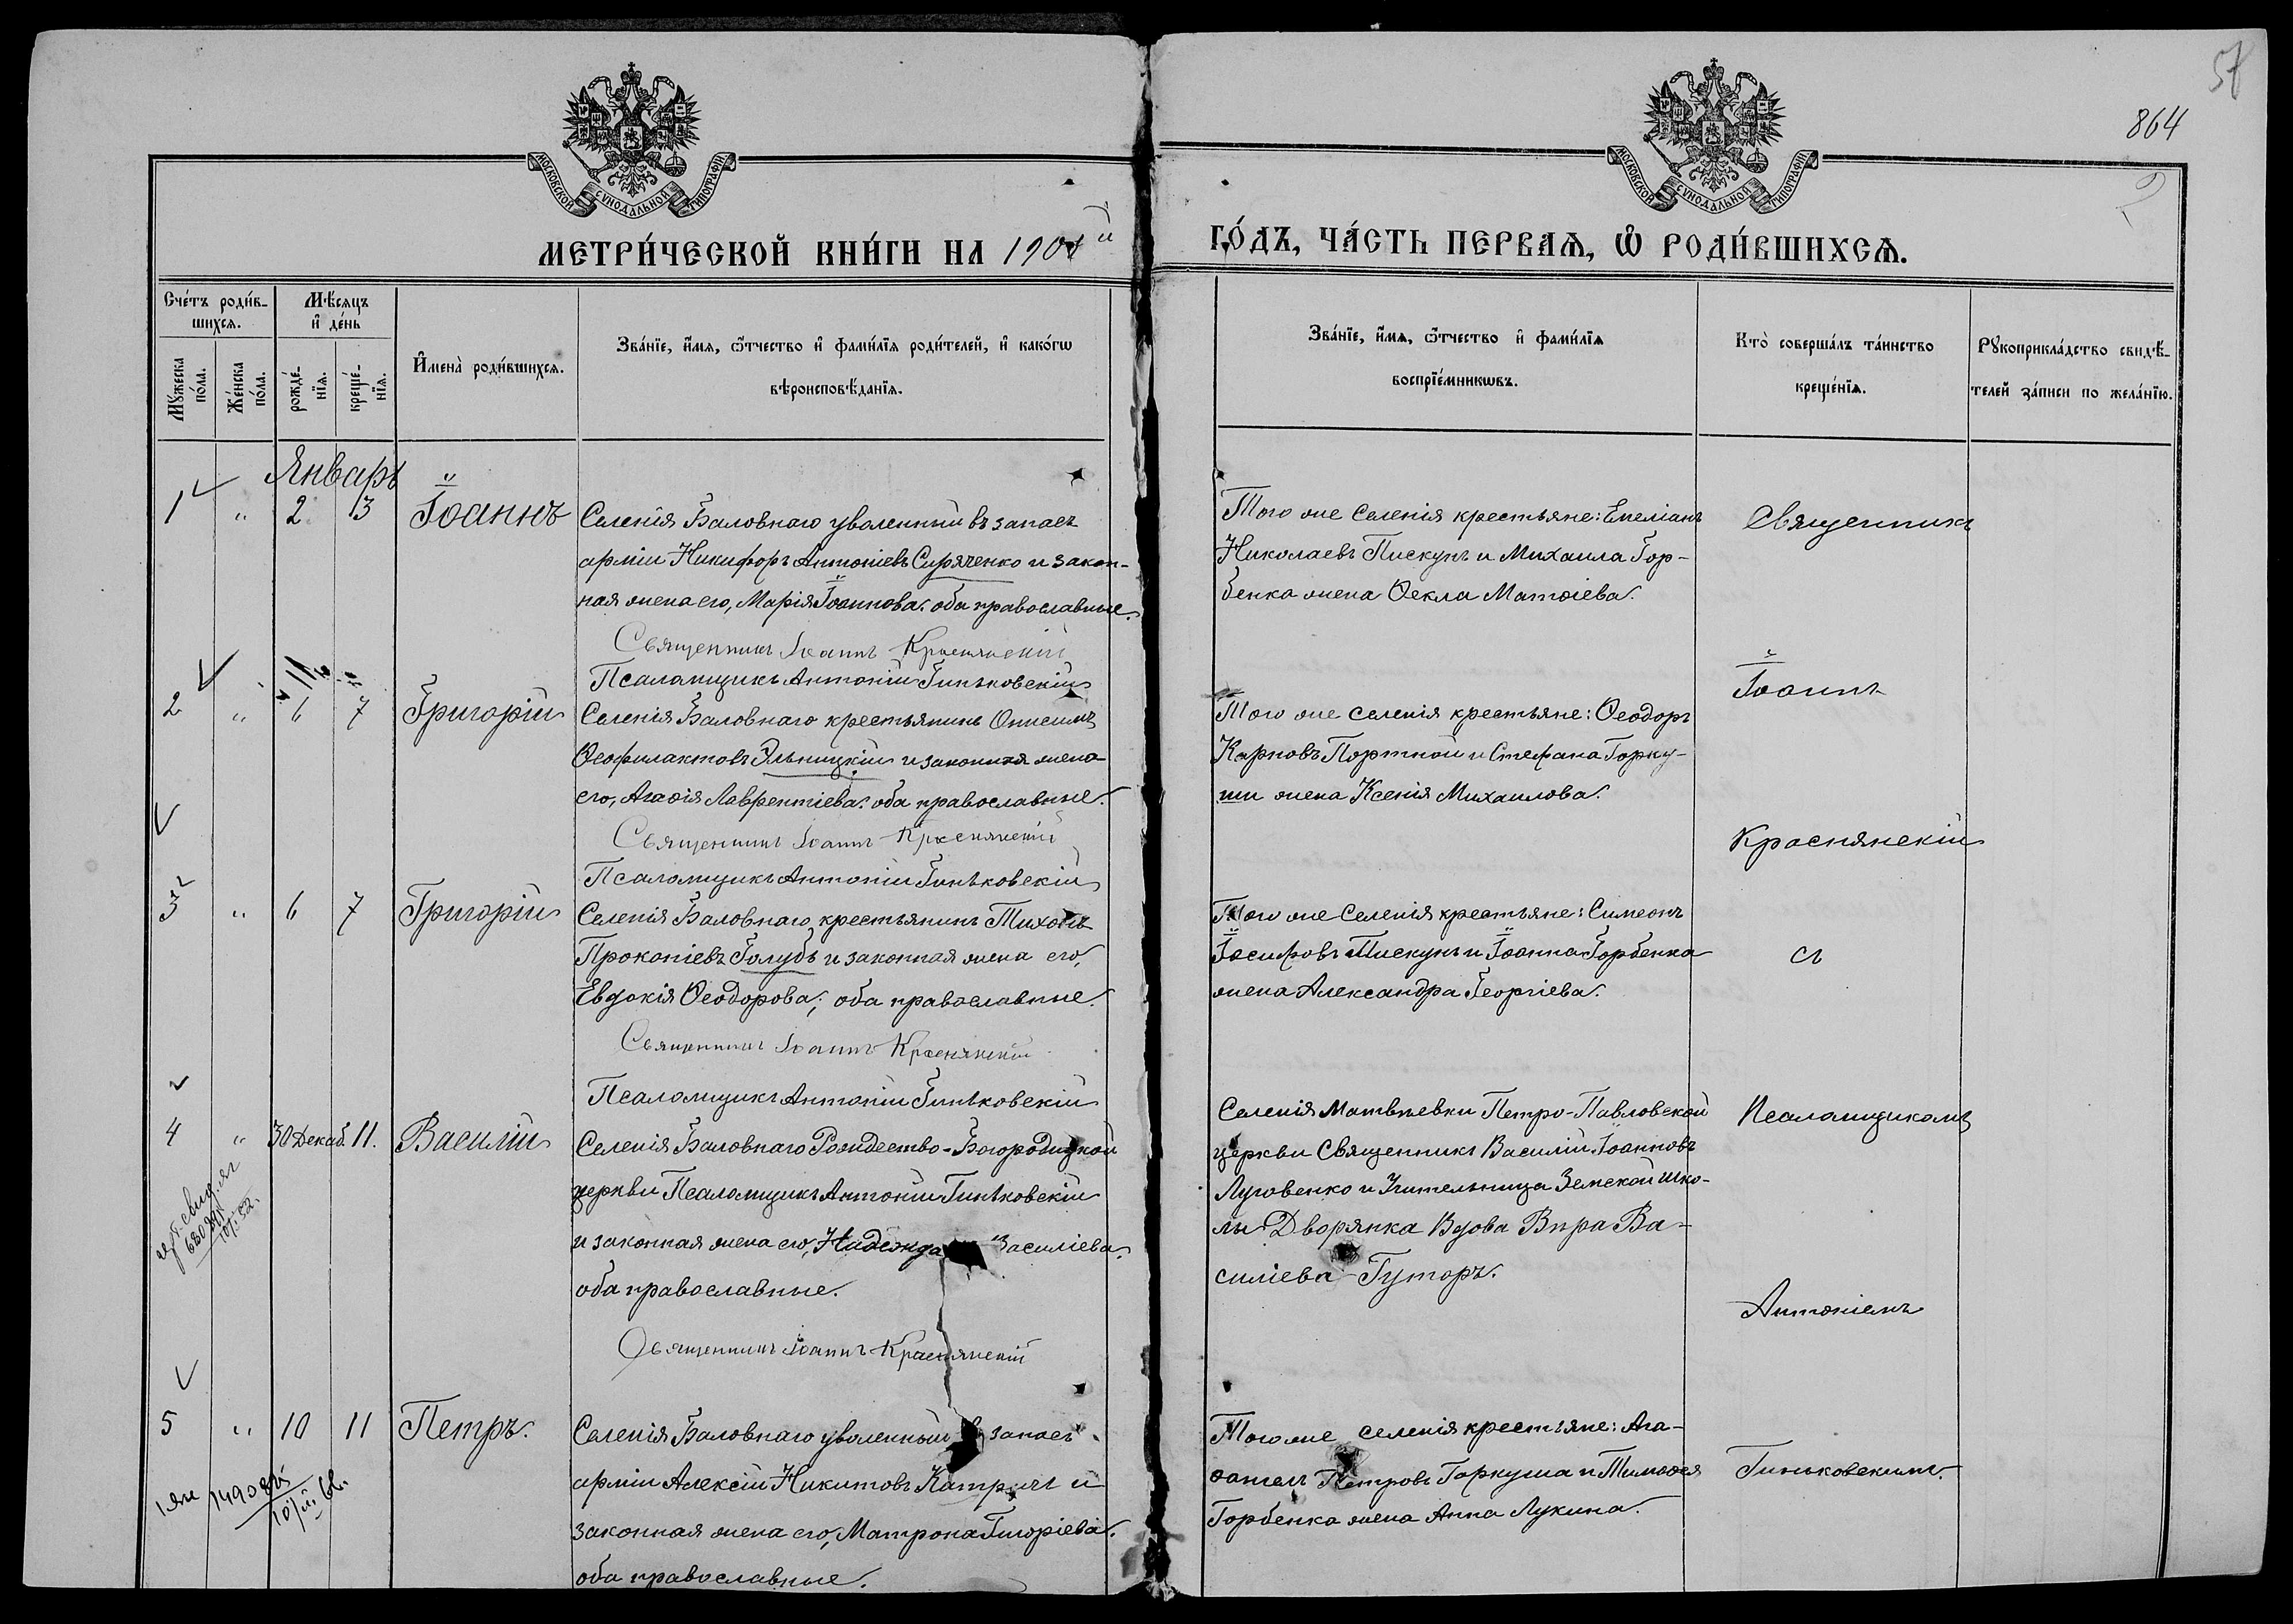 57
864
МОСКОВСКОЙ СѴНОДАЛЬНОЙ ТИПОГРАФІИ
МОСКОВСКОЙ СѴНОДАЛЬНОЙ ТИПОГРАФІИ
МЕТРИ́ЧЕСКОЙ КНИ́ГИ НА 1901й
ГО́ДЪ, ЧА́СТЬ ПЕРВАѦ, Ѽ РОДИ́ВШИХСѦ.
Сче́тъ роди́в-
шихсѧ.
Мѣ́сѧцъ
и҆ де́нь
Мꙋ́жеска
по́ла.
Же́нска
по́ла.
рожде́-
нїѧ.
креще́-
нїѧ.
И҆мена̀ роди́вшихсѧ.
Зва́нїе, и҆́мѧ, ѻ҆́тчество и҆ фами́лїѧ роди́телей, и҆ како́гѡ
вѣроисповѣ́данїѧ.
Зва́нїе, и҆́мѧ, ѻ҆́тчество и҆ фами́лїѧ
воспрїе́мникѡвъ.
Кто̀ соверша́лъ та́инство
креще́нїѧ.
Рꙋкоприкла́дство свидѣ́-
телей за́писи по жела́нїю.
Январь
1 " 2 3 Іоаннъ
Селенія Баловнаго уволенный въ запасъ
арміи Никифоръ Антоніевъ Сиряченко и закон-
ная жена его, Марія Іоаннова: оба православные.
Священникъ Іоаннъ Краснянскій
Псаломщикъ Антоній Гиньковскій
Того же селенія крестьяне: Емеліанъ
Николаевъ Пискунъ и Михаила Гор-
бенка жена Ѳекла Матѳіева.
Священникъ
2 " 6 7 Григорій
Селенія Баловнаго крестьянинъ Онисимъ
Ѳеофилактовъ Эльницкій и законная жена
его, Агаѳія Лаврентіева: оба православные.
Священникъ Іоаннъ Краснянскій
Псаломщикъ Антоній Гиньковскій
Того же селенія крестьяне: Ѳеодоръ
Карповъ Портной и Стефана Горку-
ши жена Ксенія Михаилова.
Іоаннъ
Краснянскій
3 " 6 7 Григорій
Селенія Баловнаго крестьянинъ Тихонъ
Прокопіевъ Голубъ и законная жена его,
Евдокія Ѳеодорова; оба православные.
Священникъ Іоаннъ Краснянскій
Псаломщикъ Антоній Гиньковскій
Того же селенія крестьяне: Симеонъ
Іосифовъ Пискунъ и Іоанна Горбенка
жена Александра Георгіева.
съ
4 " 30 Декаб. 11. Василій
Селенія Баловнаго Рождество-Богородицкой
церкви Псаломщикъ Антоній Гиньковскій
и законная жена его, Надежда Василіева.
оба православные.
Священникъ Іоаннъ Краснянскій
Селенія Матвѣевки Петро-Павловской
церкви Священникъ Василій Іоанновъ
Луговенко и Учительница Земской Шко-
лы Дворянка Вдова Вѣра Ва-
силіева Гуторъ.
Псаломщикомъ
Антоніемъ
5 " 10 11 Петръ.
Селенія Баловнаго уволенный въ запасъ
арміи Алексій Никитовъ Катричъ и
законная жена его, Матрона Григоріева:
оба православные.
Того же селенія крестьяне: Ага-
ѳангелъ Петровъ Горкуша и Тимоѳея
Горбенка жена Анна Лукина.
Гиньковскимъ.